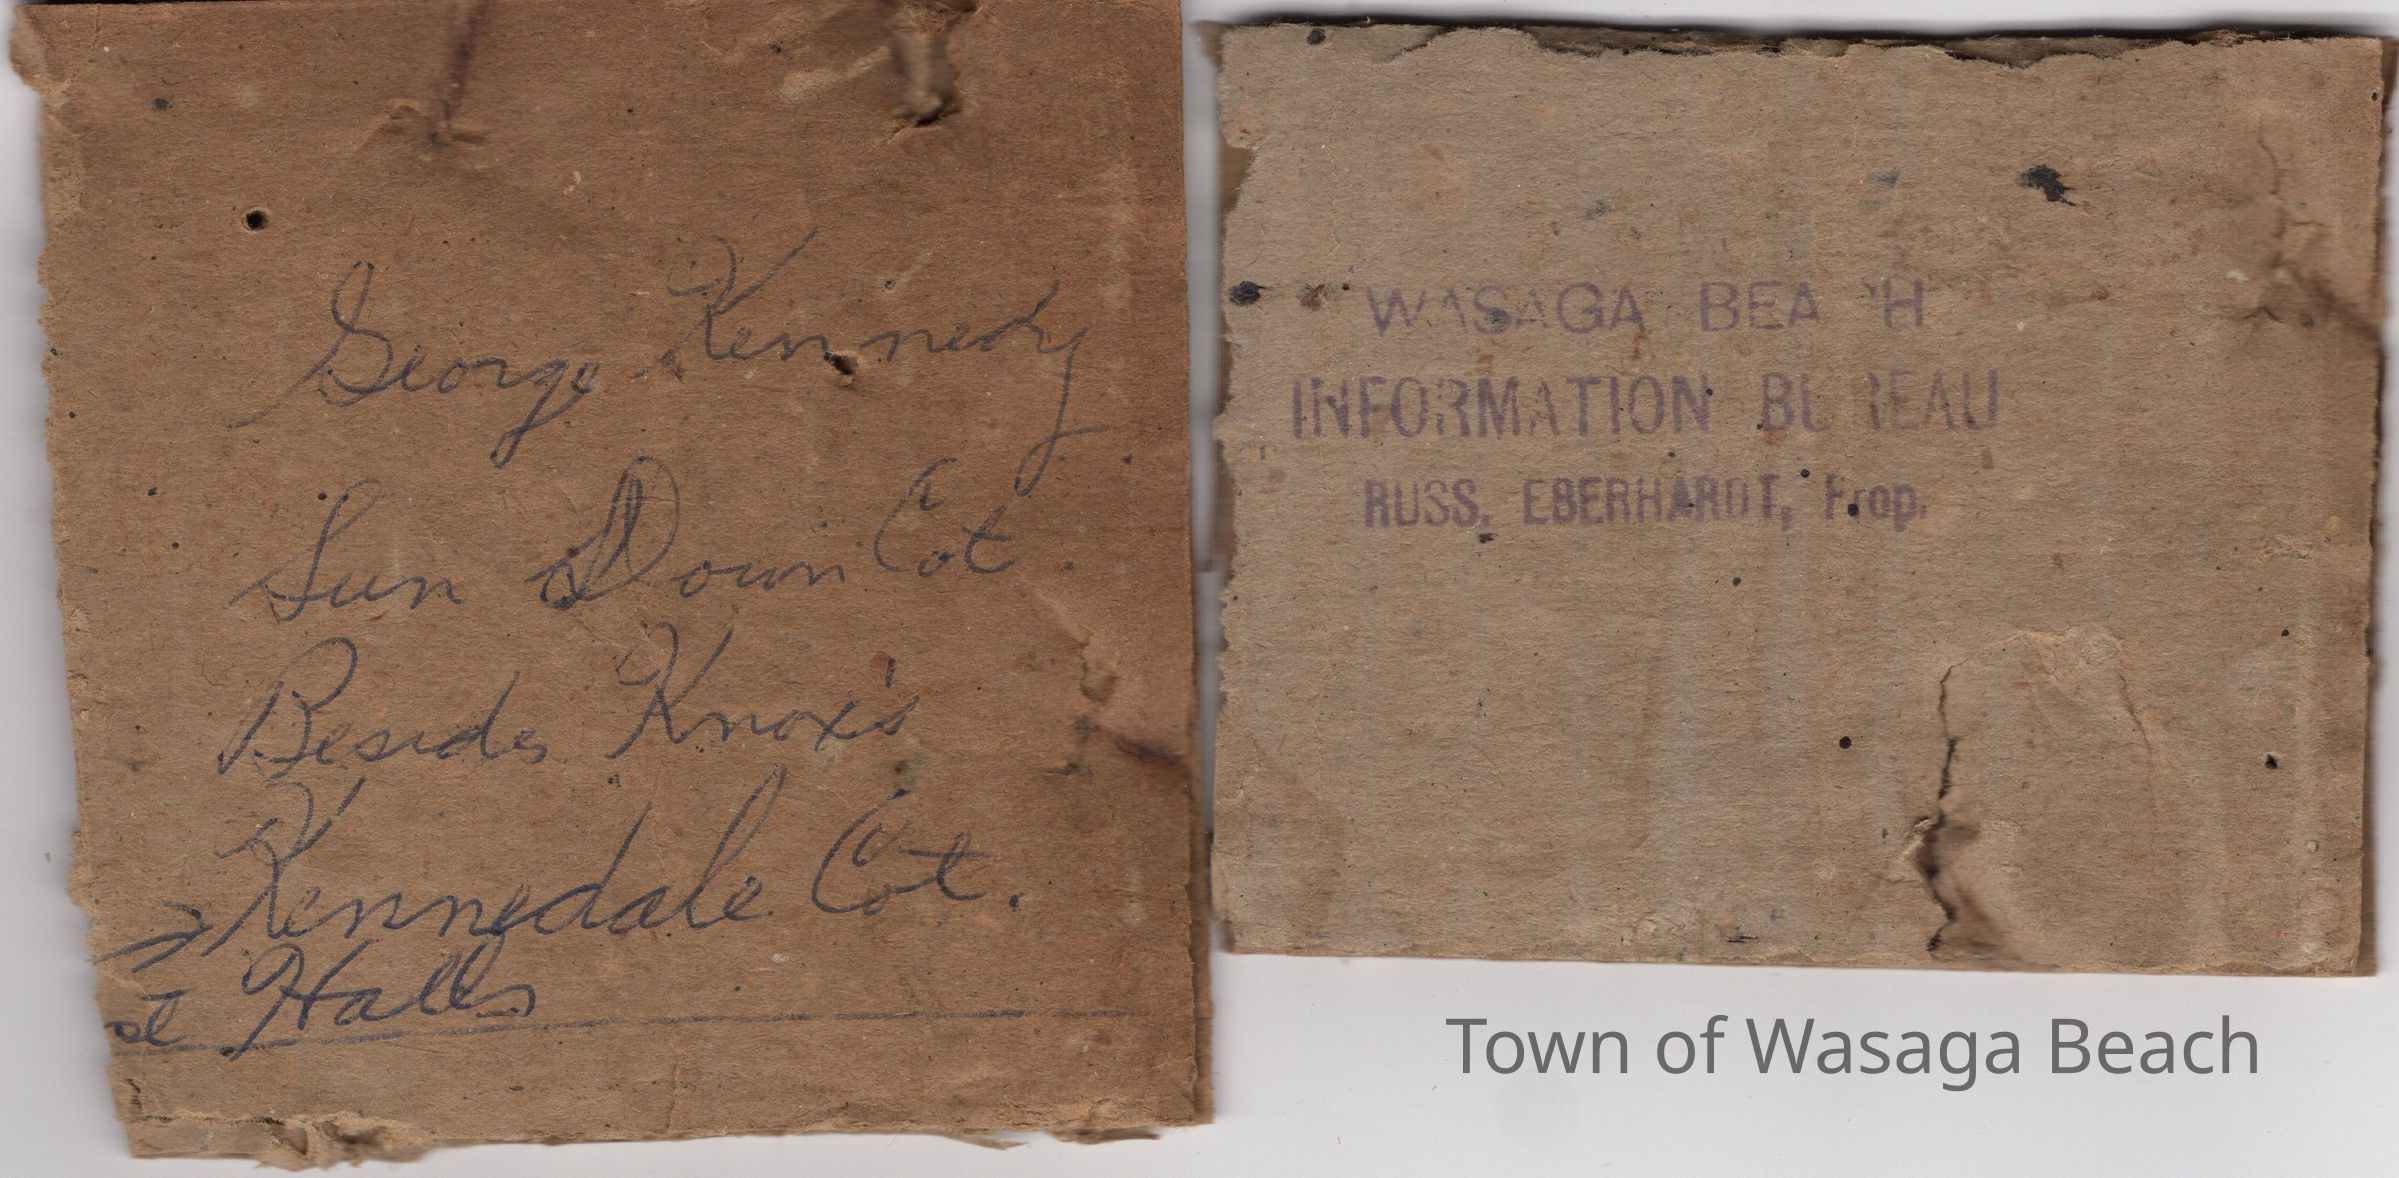 George Kennedy
Sun Down Cot
Beside Knox's
Kennedale Cot.
at Halls
WASAGA BEACH
INFORMATION BUREAU
RUSS. EBERHARDT, Prop.
Town of Wasaga Beach